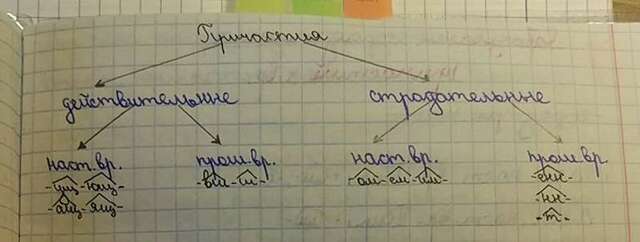 Причастия
действительные страдательные
наст.вр. прош.вр. наст.вр. прош.вр
-ущ-ющ- -вш-ш- -ом-ем-им- -енн-
-ащ-ящ- -нн-
-т-